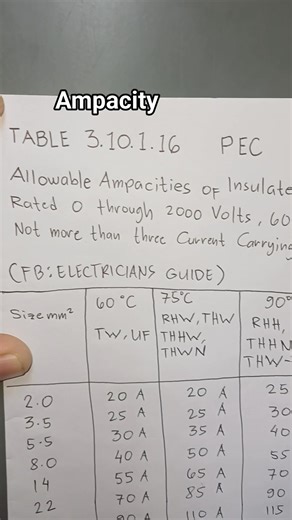 Ampacity
TABLE 3.10.1.16 PEC
Allowable Ampacities of Insulate
Rated 0 through 2000 Volts, 60
Not more than three Current Carrying
(FB: ELECTRICIANS GUIDE)
Size mm² 60°C 75°C 90°
TW, UF RHW, THW RHH,
THHW, THHN
THWN THW-
2.0 20 A 20 A 25
3.5 25 A 25 A 30
5.5 30 A 35 A 40
8.0 40 A 50 A 55
14 55 A 65 A 70
22 70 A 85 A 90
90 A 110 A 115